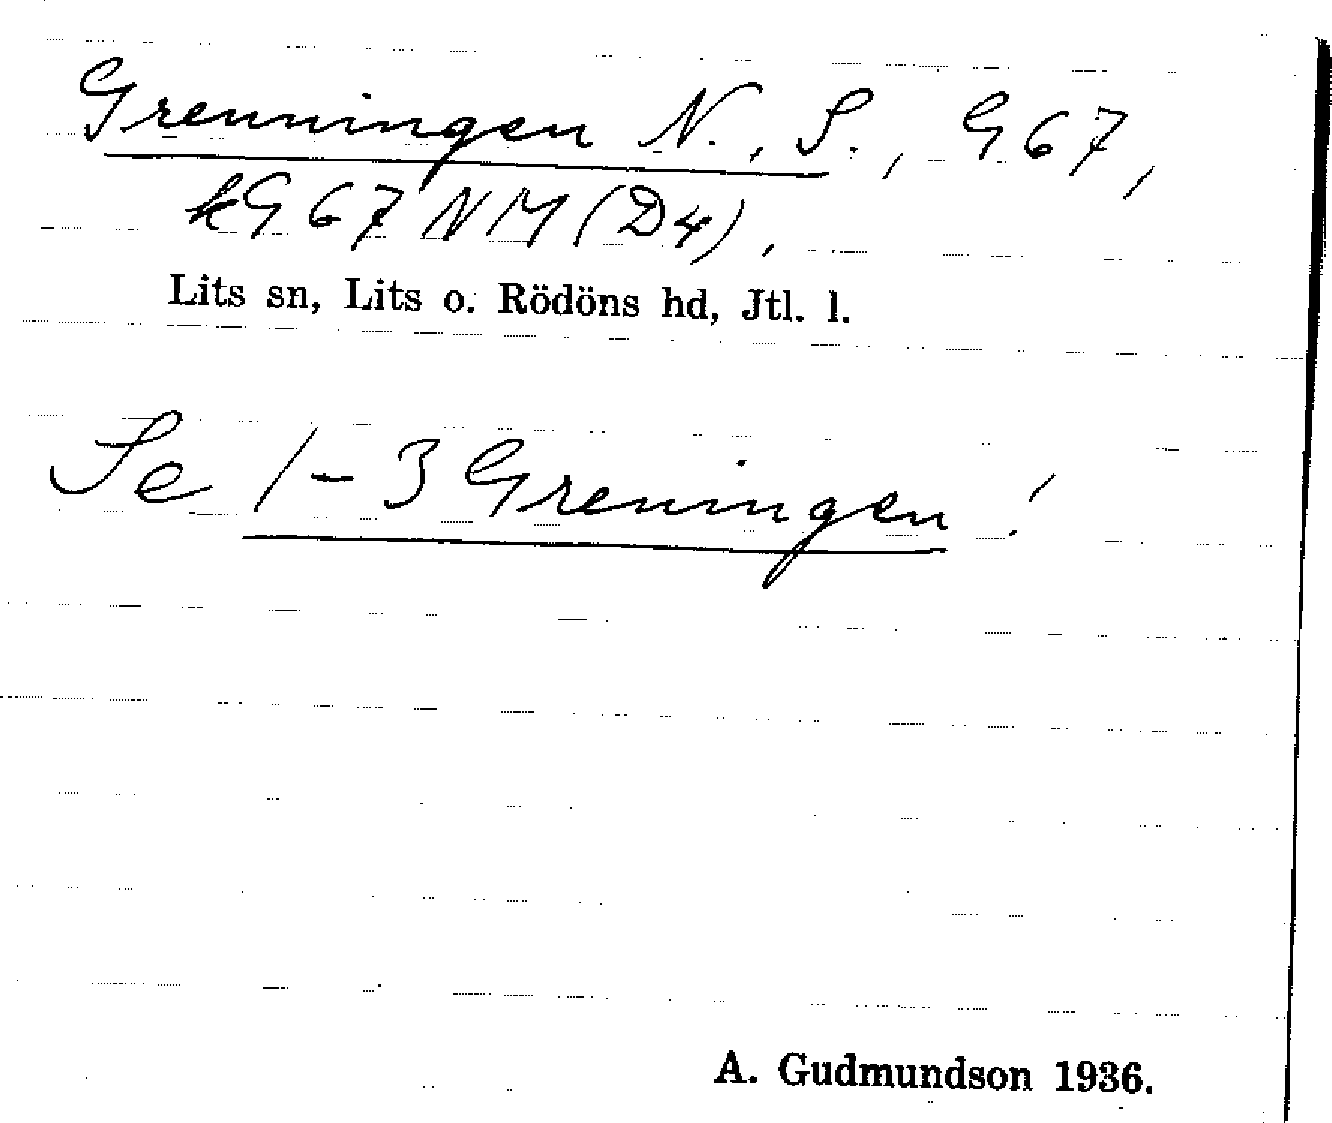 Grenningen N., S., G 67,
kG 67 NM (D4),
Lits sn, Lits o. Rödöns hd, Jtl. l.
Se 1-3 Greningen!
A. Gudmundson 1936.